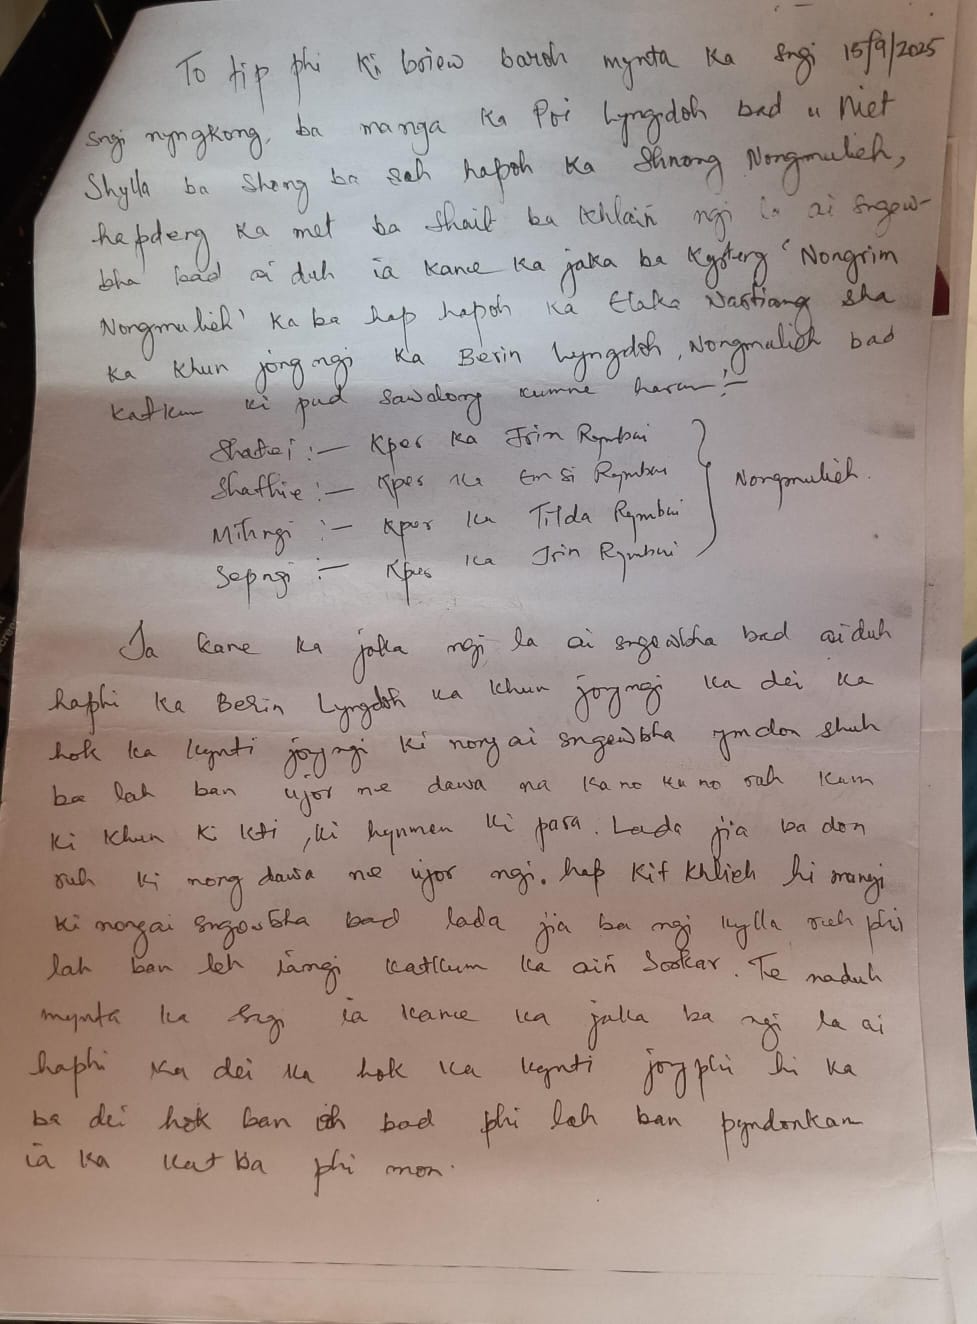 To tip phi ki briew baroh mynta ka sngi 15/9/2025
sngi nyngkong, ba manga ka Poi Lyngdoh bad u Niet
Shylla ba shong ba sah hapoh ka Shnong Nongmulieh,
hapdeng ka met ba shait ba khlaiñ ngi la ai sngew-
bha bad ai duh ia kane ka jaka ba kyrteng 'Nongrim
Nongmulieh' ka ba hap hapoh ka Elaka Nartiang sha
ka khun jong ngi ka Berin Lyngdoh, Nongmulieh bad
katkum ki pud sawdong kumne harum:-
Shatei :- Kper ka Irin Rymbai
Shathie :- Kper ka Ensi Rymbai
Mihngi :- Kper ka Tilda Rymbai
Sepngi :- Kper ka Irin Rymbai
Nongmulieh.
Ia kane ka jaka ngi la ai sngewbha bad ai duh
haphi ka Berin Lyngdoh ka khun jongngi ka dei ka
hok ka kynti jongngi ki nong ai sngewbha ym don shuh
ba lah ban ujor ne dawa na kano kano ruh kum
ki khun ki kti, ki hynmen ki para. Lada jia ba don
ruh ki nong dawa ne ujor ngi. hap kit khlieh hi mangi
ki nongai sngewbha bad lada jia ba ngi kylla ruh phi
lah ban leh iangi katkum ka aiñ Sorkar. Te naduh
mynta ka sngi ia kane ka jaka ba ngi la ai
haphi ka dei ka hok ka kynti jong phi hi ka
ba dei hok ban ioh bad phi lah ban pyndonkam
ia ka katba phi mon.